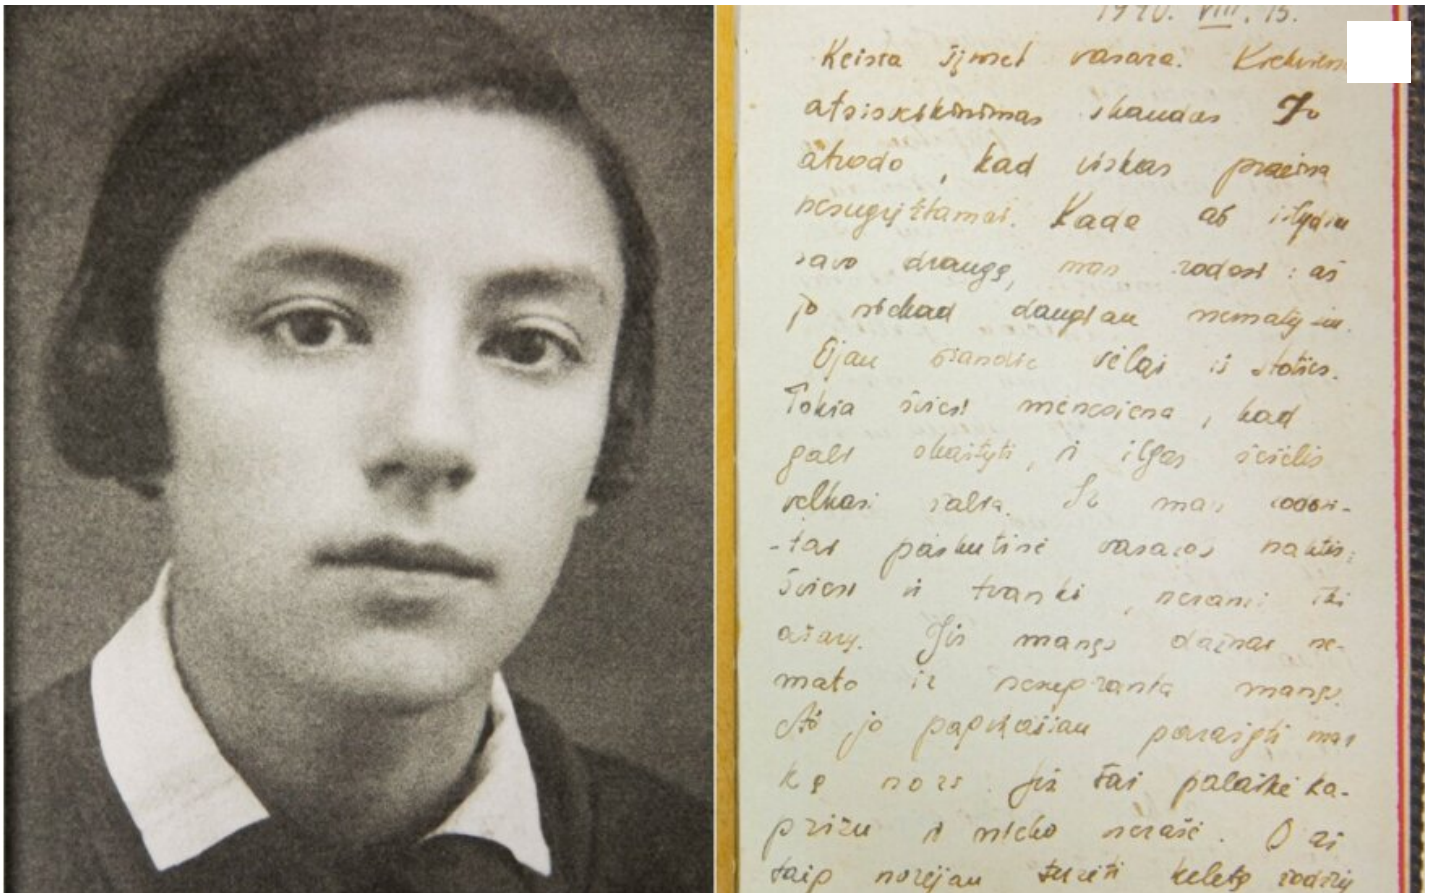 1940. VIII. 15.
Keista šįmet vasara. Kiekvienas
atsisveikinimas skaudus. Jo
atrodo, kad viskas praeina
nesugrįžtamai. Kada aš išlydiu
savo draugę, man rodosi: aš
jo niekad daugiau nematysiu.
Ėjau šiandie vėlai iš stoties.
Tokia šviesi mėnesiena, kad
gali skaityti, ir ilgas šešėlis
velkasi šalia. Ir man
paskutinė vasaros naktis:
šviesi ir tvanki, nerami iki
ašarų. Jis manęs dažnai ne-
mato ir nesupranta manęs.
Aš jo paprašiau parašyti man
ką nors. Jis tai palaikė ka-
prizu ir nieko nerašė. O aš
taip norėjau turėti keletą žodžių